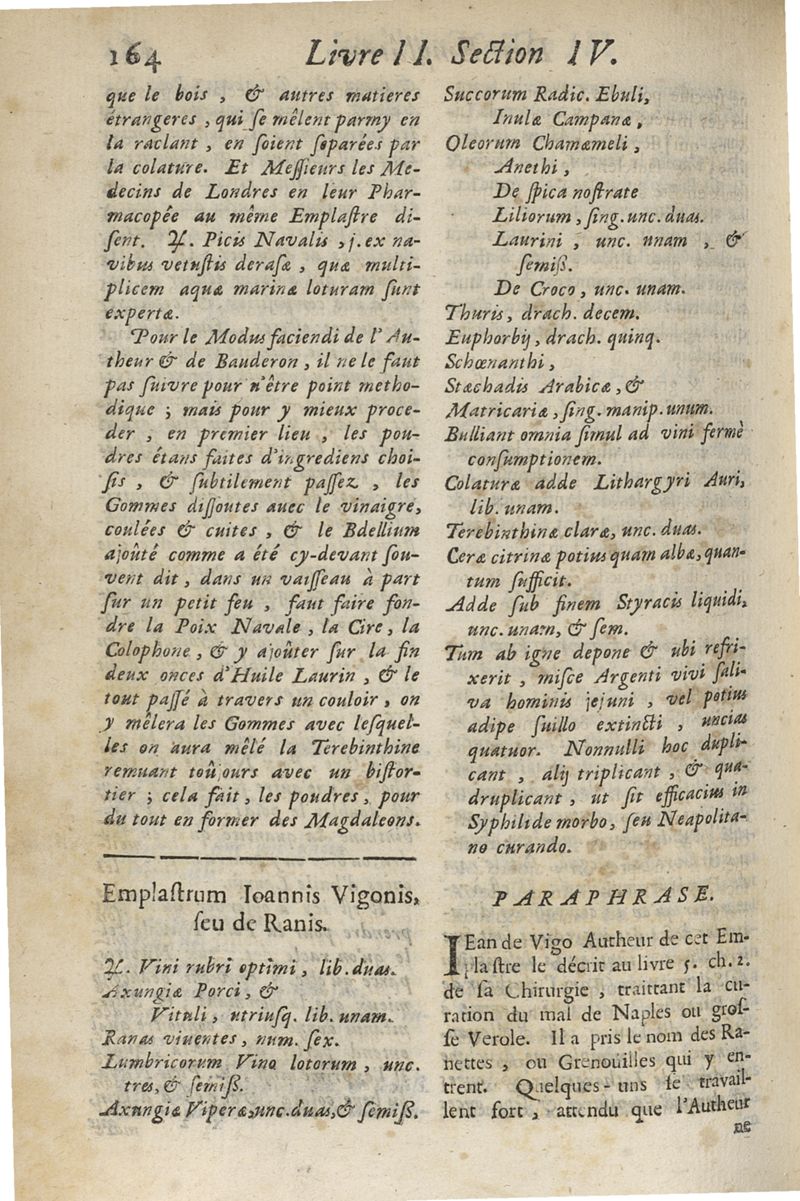 164 Livre II. Section IV.
que le bois , & autres matieres
étrangeres , qui ſe mêlent parmy en
la raclant , en ſoient ſeparées par
la colature. Et Meſſieurs les Me-
decins de Londres en leur Phar-
macopée au même Emplaſtre di-
ſent. ℞. Picis Navalis , j. ex na-
vibus vetuſtis deraſæ , quæ multi-
plicem aquæ marinæ loturam ſunt
expertæ.
Pour le Modus faciendi de l'Au-
theur & de Bauderon , il ne le faut
pas ſuivre pour n'être point metho-
dique ; mais pour y mieux proce-
der , en premier lieu , les pou-
dres étans faites d'ingrediens choi-
ſis , & ſubtilement paſſez , les
Gommes diſſoutes avec le vinaigre,
coulées & cuites , & le Bdellium
ajoûté comme a été cy-devant ſou-
vent dit , dans un vaiſſeau à part
ſur un petit feu , faut faire fon-
dre la Poix Navale , la Cire , la
Colophone , & y ajoûter ſur la fin
deux onces d'Huile Laurin , & le
tout paſſé à travers un couloir , on
y mêlera les Gommes avec leſquel-
les on aura mêlé la Terebinthine
remuant toûjours avec un biſtor-
tier ; cela fait , les poudres , pour
du tout en former des Magdaleons.
Emplaſtrum Ioannis Vigonis,
ſeu de Ranis.
℞. Vini rubri optimi , lib. duas.
Axungiæ Porci , &
Vituli , utriuſq. lib. unam.
Ranas viventes , num. ſex.
Lumbricorum Vino lotorum , unc.
tres, & ſemiß.
Axungiæ Viperæ, unc. duas, & ſemiß.
Succorum Radic. Ebuli,
Inulæ Campanæ ,
Oleorum Chamæmeli ,
Anethi ,
De ſpica noſtrate
Liliorum , ſing. unc. duas.
Laurini , unc. unam , &
ſemiß.
De Croco , unc. unam.
Thuris, drach. decem.
Euphorbij, drach. quinq.
Schœnanthi ,
Stæchadis Arabicæ , &
Matricariæ , ſing. manip. unum.
Bulliant omnia ſimul ad vini fermè
conſumptionem.
Colaturæ adde Lithargyri Auri,
lib. unam.
Terebinthinæ claræ, unc. duas.
Ceræ citrinæ potius quam albæ, quan-
tum ſufficit.
Adde ſub finem Styracis liquidi,
unc. unam, & ſem.
Tum ab igne depone & ubi refri-
xerit , miſce Argenti vivi ſali-
va hominis jejuni , vel potius
adipe ſuillo extincti , uncias
quatuor. Nonnulli hoc dupli-
cant , alij triplicant , & qua-
druplicant , ut ſit efficacius in
Syphilide morbo, ſeu Neapolita-
no curando.
PARAPHRASE.
IEan de Vigo Autheur de cet Em-
plaſtre le décrit au livre 5. ch. 2.
de ſa Chirurgie , traittant la cu-
ration du mal de Naples ou groſ-
ſe Verole. Il a pris le nom des Ra-
nettes , ou Grenoüilles qui y en-
trent. Quelques-uns ſe travail-
lent fort , attendu que l'Autheur
ne